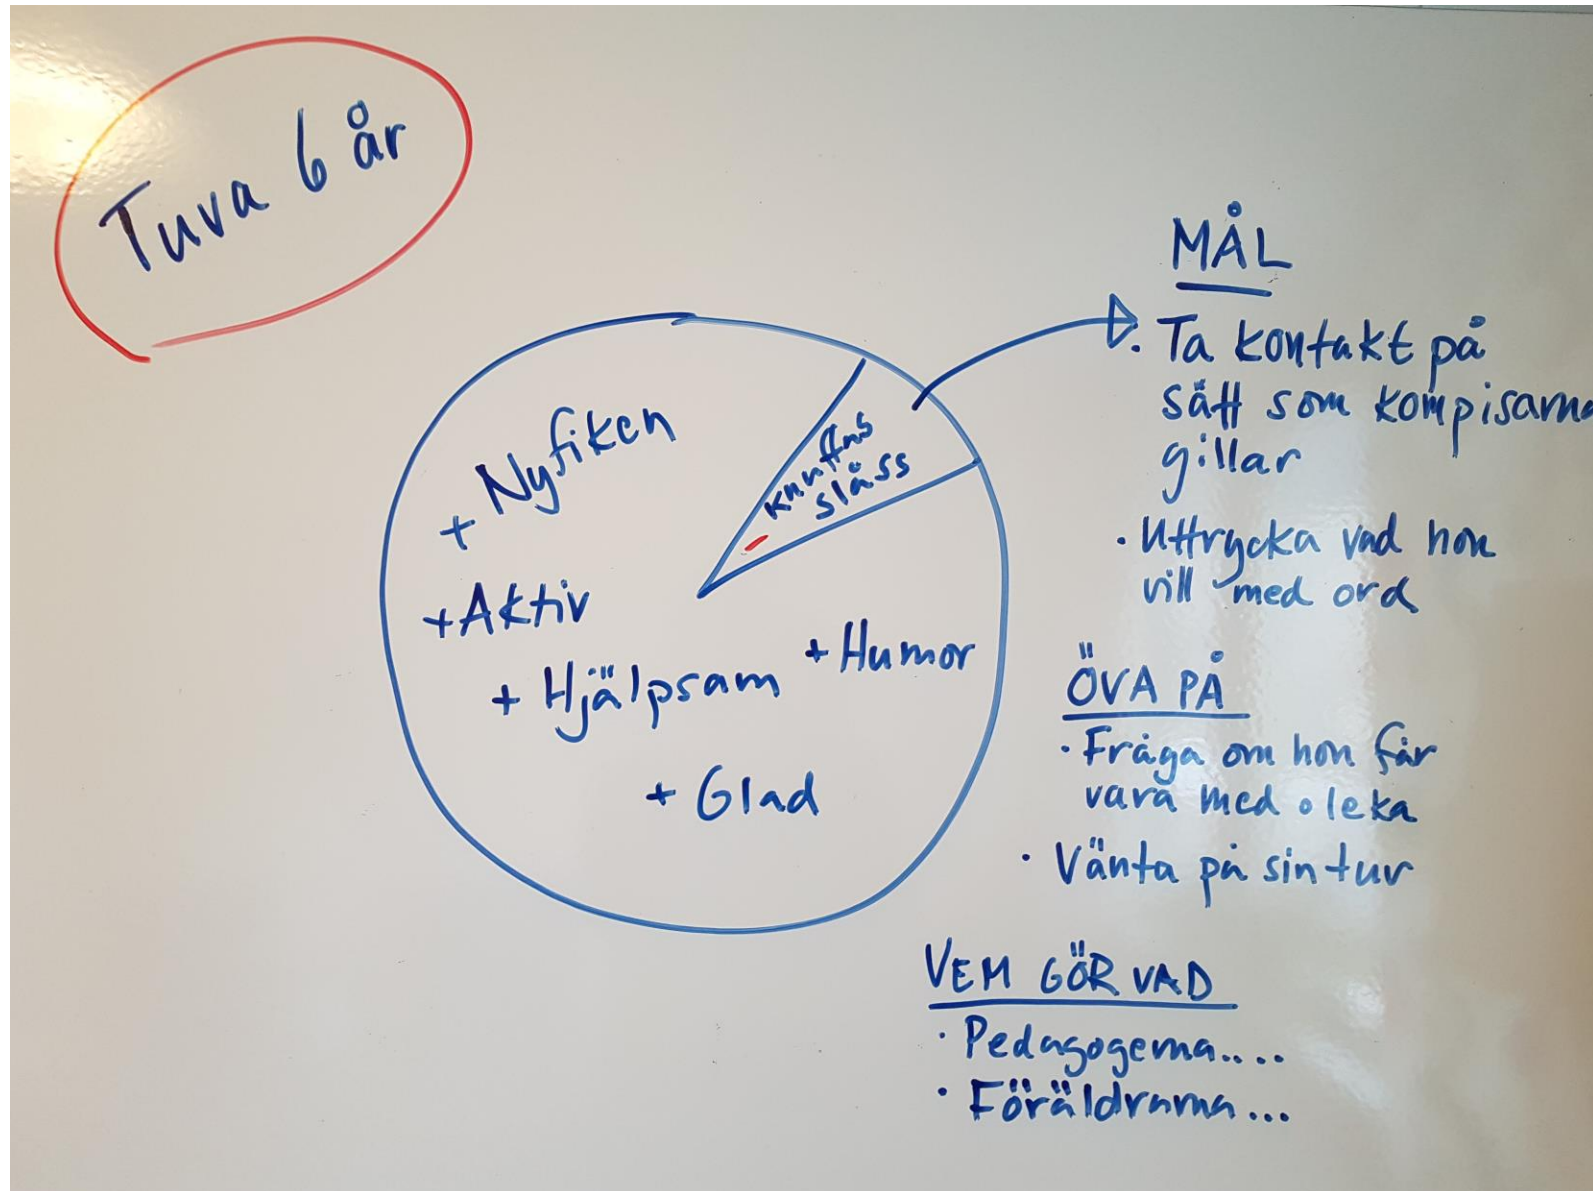 Tuva 6 år
+ Nyfiken
+ Aktiv
+ Hjälpsam
+ Humor
+ Glad
- knuffas
slåss
MÅL
· Ta kontakt på
sätt som kompisarna
gillar
· Uttrycka vad hon
vill med ord
ÖVA PÅ
· Fråga om hon får
vara med o leka
· Vänta på sin tur
VEM GÖR VAD
· Pedagogerna....
· Föräldrarna...